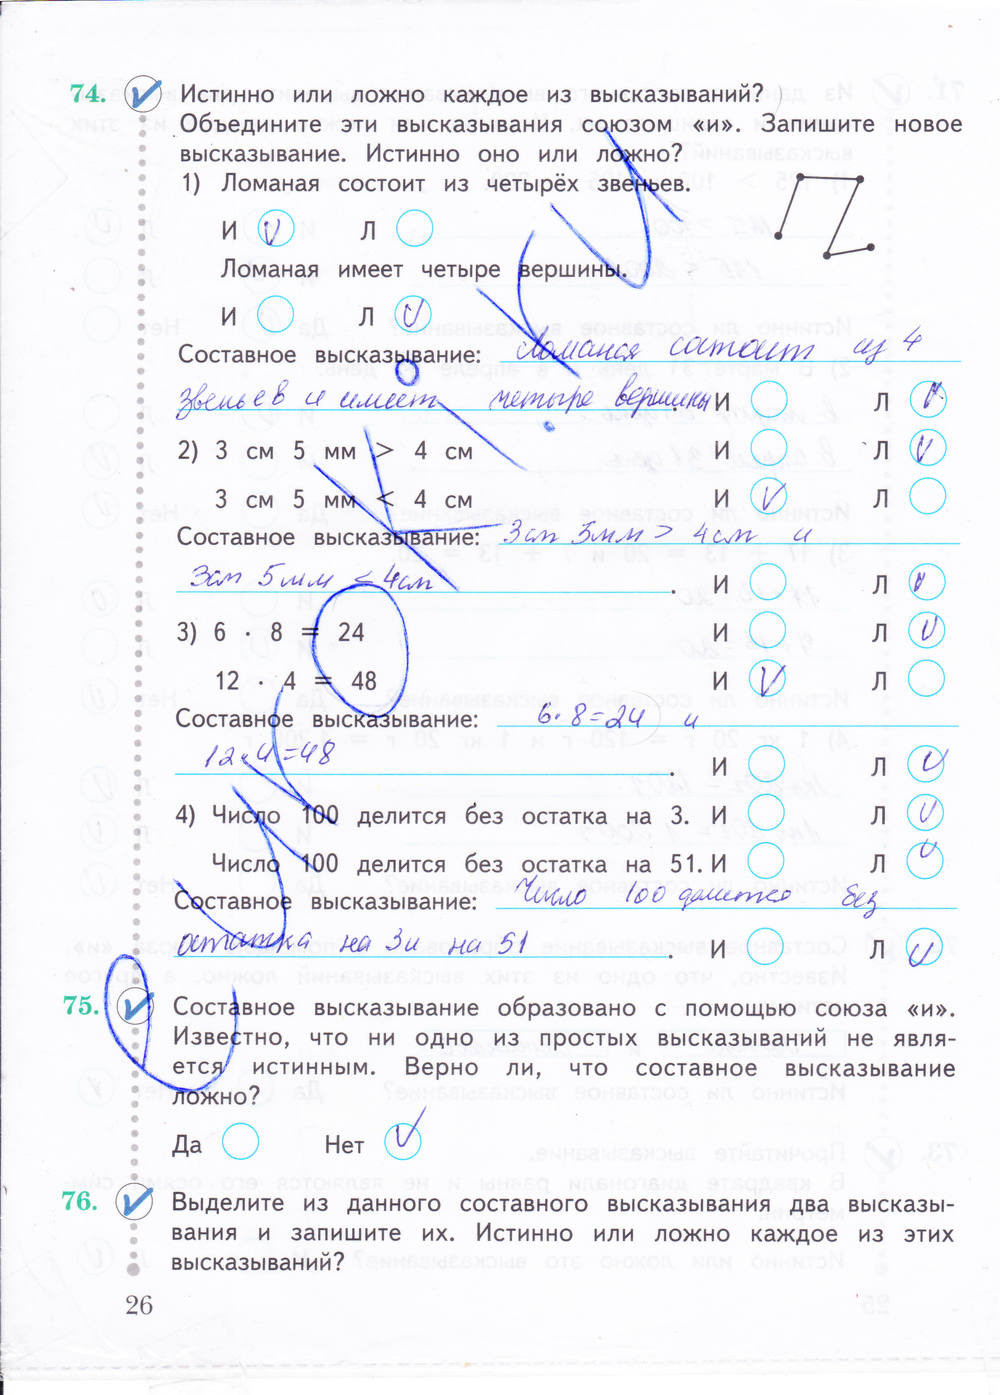 74. Истинно или ложно каждое из высказываний?
Объедините эти высказывания союзом «и». Запишите новое
высказывание. Истинно оно или ложно?
1) Ломаная состоит из четырёх звеньев.
И V Л
Ломаная имеет четыре вершины.
И Л V
Составное высказывание: Ломаная состоит из 4
звеньев и имеет четыре вершины. И Л V
2) 3 см 5 мм > 4 см И Л V
3 см 5 мм < 4 см И V Л
Составное высказывание: 3см 5мм > 4см и
3см 5мм < 4см . И Л V
3) 6 · 8 = 24 И Л V
12 · 4 = 48 И V Л
Составное высказывание: 6·8=24 и
12·4=48 . И Л V
4) Число 100 делится без остатка на 3. И Л V
Число 100 делится без остатка на 51. И Л V
Составное высказывание: Число 100 делится без
остатка на 3 и на 51 . И Л V
75. Составное высказывание образовано с помощью союза «и».
Известно, что ни одно из простых высказываний не явля-
ется истинным. Верно ли, что составное высказывание
ложно?
Да Нет V
76. Выделите из данного составного высказывания два высказы-
вания и запишите их. Истинно или ложно каждое из этих
высказываний?
26